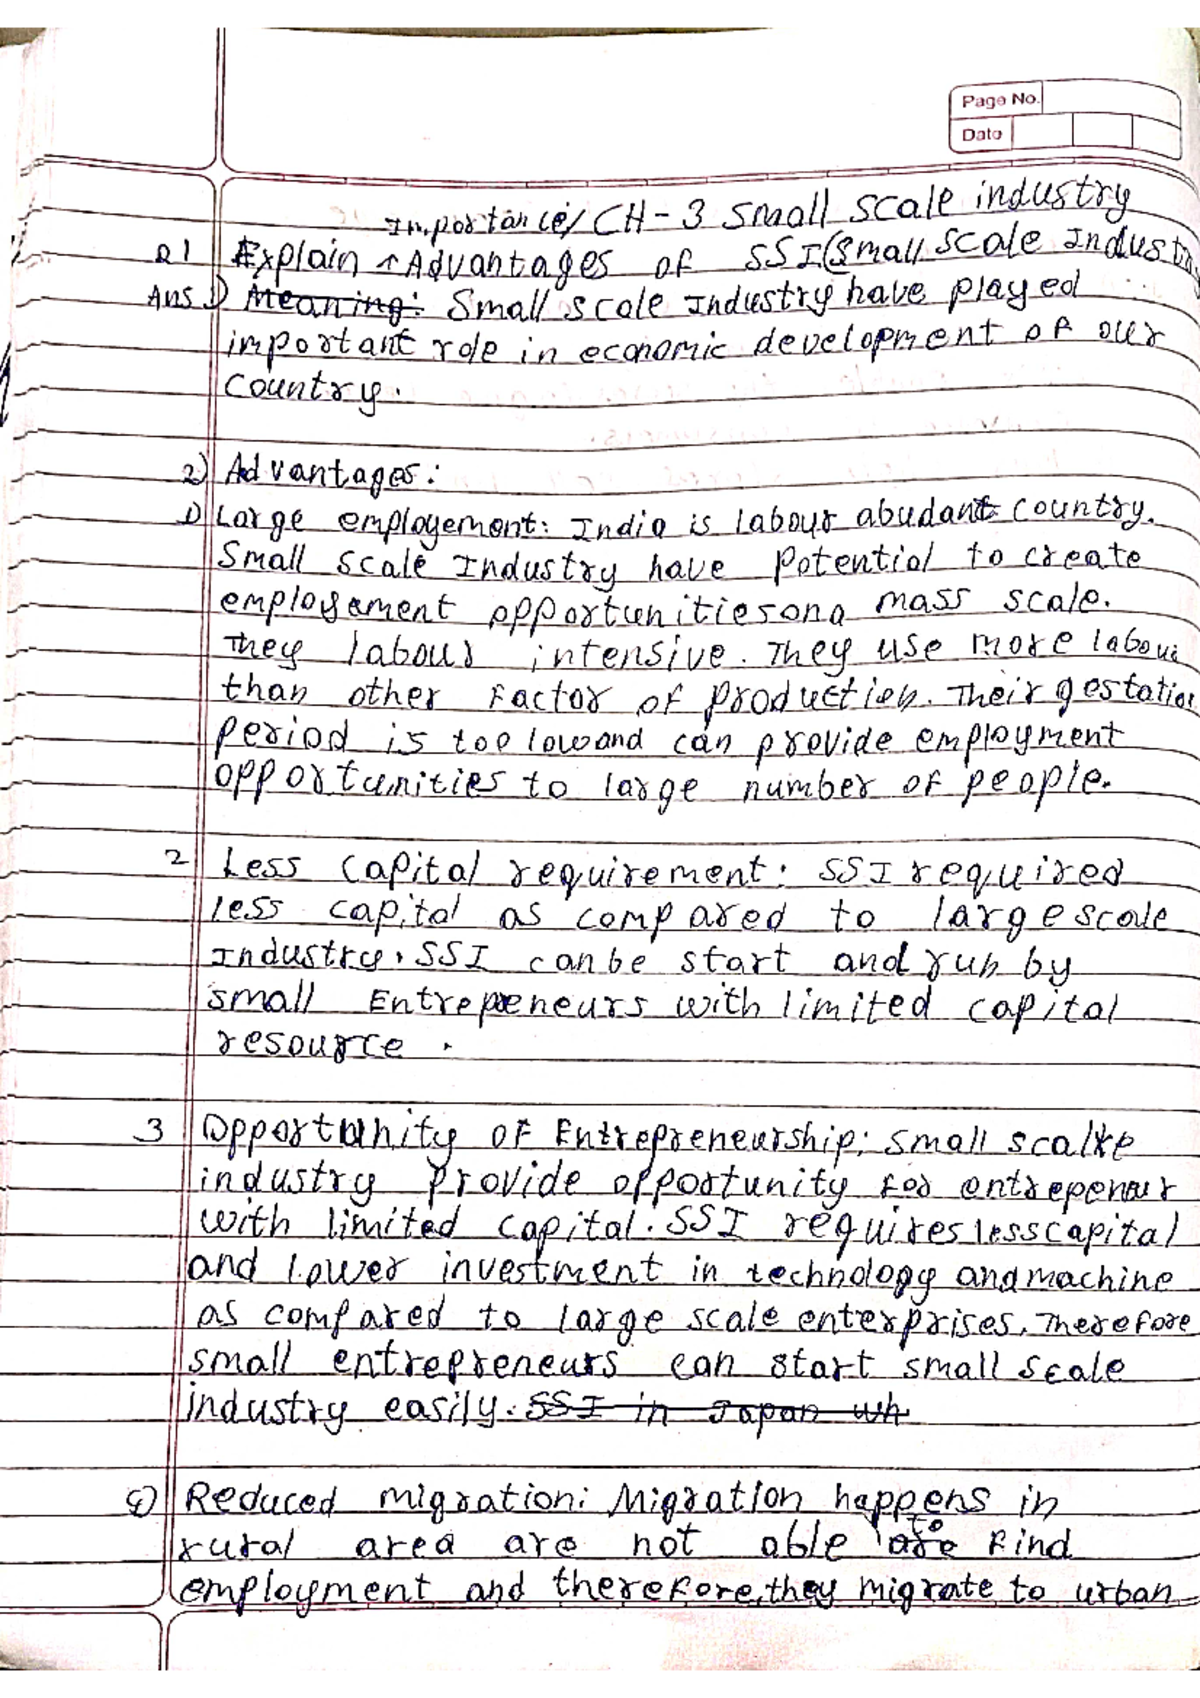 Page No.
Date
Importance/ CH-3 Small Scale industry
Q1 Explain ↑ Advantages of SSI (Small Scale Indust
Ans 1) Meaning: Small scale Industry have played
important role in economic development of our
country.
2) Advantages:
1) Large employement: India is labour abudant country.
Small scale Industry have Potential to create
employement opportunities on a mass scale.
They labour intensive. They use more labour
than other factor of production. Their gestation
period is too low and can provide employment
opportunities to large number of people.
2 Less capital requirement: SSI required
less capital as compared to large scale
Industry. SSI can be start and run by
small Entrepreneurs with limited capital
resource.
3 Opportunity of Entrepreneurship: Small scale
industry Provide opportunity for entrepenur
with limited capital. SSI requires less capital
and lower investment in technology and machine
as compared to large scale enterprises. Therefore
small entrepreneurs can start small scale
industry easily. SSI in Japan wh
4) Reduced migration: Migration happens in
rural area are not able to find
employment and therefore, they migrate to urban